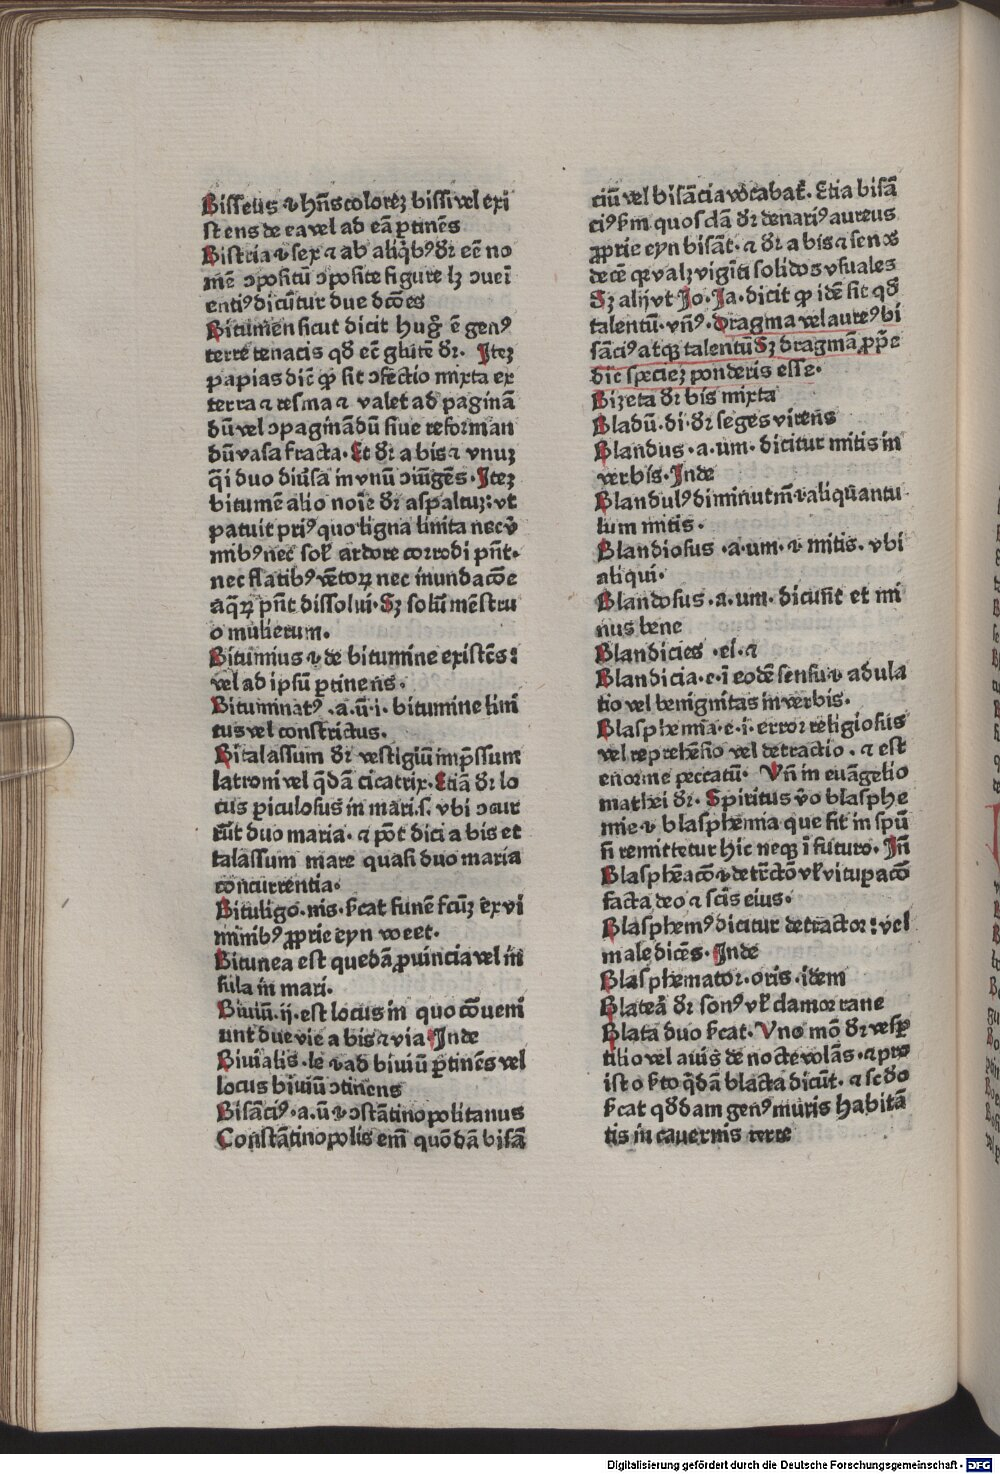 Bisselis ⁊ hn̄s colorēꝫ bissi vel exi
stens de ea vel ad eā ꝑtinēs
Bistria ⁊ sex ⁊ ab aliqͥbꝰ dr̄ eē no
mē ꝯpositū ꝯposite figure lꝫ ꝯueī
entiꝰ dicūtur due dc̄ōes
Bitumen sicut dicit hug̊ ē genꝰ
terre tenacis qd̄ eē glutē dr̄. Iteꝫ
papias dic̄ ꝙ sit ꝯfectio mixta ex
terra ⁊ resma ⁊ valet ad paginā
dū vel ꝯpaginādū siue reforman
dū vasa fracta. Et dr̄ a bis ⁊ vnuꝫ
qͣi duo diūsa in vnū ꝯiūgēs. Iteꝫ
bitumē alio noīe dr̄ aspaltuꝫ: vt
patuit priꝰ quo ligna linita nec v̄
mibꝰ nec sol̄ ardore corrodi pn̄t.
nec flatibꝰ vētoꝝ nec inundacōe
aq̄ꝝ pn̄t dissolui. Sꝫ solū mēstru
o mulierum.
Bitumius ⁊ de bitumine existēs:
vel ad ipsū ꝑtinens.
Bituminatꝰ .a.ū.i. bitumine lini
tus vel constrictus.
Bitalassum dr̄ vestigiū imp̄ssum
latroni vel q̄dā cicatrix. Etiā dr̄ lo
cus ꝑiculosus in mari.s. vbi ꝯcur
rūt duo maria. ⁊ pōt dici a bis et
talassum mare quasi duo maria
concurrentia.
Bituligo.nis. s̄cat funē fcūꝫ ex vi
minibꝰ ꝓprie eyn weet.
Bitunea est quedā ꝓuincia vel in
sula in mari.
Biuiū.ij. est locus in quo cōueni
unt due vie a bis ⁊ via Inde
Biuialis.le ⁊ ad biuiū ꝑtinēs vel
locus biuiū ꝯtinens
Bisāciꝰ.a.ū ⁊ ꝯstātinopolitanus
Constātinopolis em̄ quōdā bisā
ciū vel bisācia vocabat᷑. Etiā bisā
ciꝰ s̄m quosdā dr̄ denariꝰ aureus
ꝓprie eyn bisāt. ⁊ dr̄ a bis ⁊ senos
decē qꝛ valꝫ vigīti solidos vsuales
Sꝫ alij vt Jo. Ja. dicit ꝙ idē sit qd̄
talentū. vn̄ꝰ. Dragma vel aureꝰ bi
sāciꝰ atqꝫ talentū Sꝫ dragmā ꝓp̄e
dic̄ specieꝫ ponderis esse.
Bizeta dr̄ bis mixta
Bladū.di. dr̄ seges virens
Blandus.a.um. dicitur mitis in
verbis. Inde
Blandulꝰ diminutm̄ ⁊ aliquantu
lum mitis.
Blandiosus .a.um. ⁊ mitis. vbi
aliqui.
Blandosus.a.um. dicūt et mi
nus bene
Blandicies .ei. ⁊
Blandicia.e.ī eodē sensu ⁊ adula
tio vel benignitas in verbis.
Blasphemia.e.i. error religiosus
vel reprehēsio vel detractio. ⁊ est
enorme peccatū. Vn̄ in euāgelio
mathei dr̄. Spiritus v̄o blasphe
mie ⁊ blasphemia que fit in spū
s̄i remittetur hic neqꝫ ī futuro. In̄
Blasphēacō ⁊ detrc̄tō vl̄ vituꝑacō
facta deo ⁊ scīs eius.
Blasphemꝰ dicitur detractor: vel
male dicēs. Inde
Blasphemator.oris. idem
Blateā dr̄ sonꝰ vl̄ clamor rane
Blata duo s̄cat. Vno mō dr̄ vesꝑ
tilio vel auis de nocte volās. ⁊ pro
isto s̄to q̄dā blacta dicūt. ⁊ scd̄o
s̄cat qd̄dam genꝰ muris habitā
tis in cauernis terre
Digitalisierung gefördert durch die Deutsche Forschungsgemeinschaft - DFG